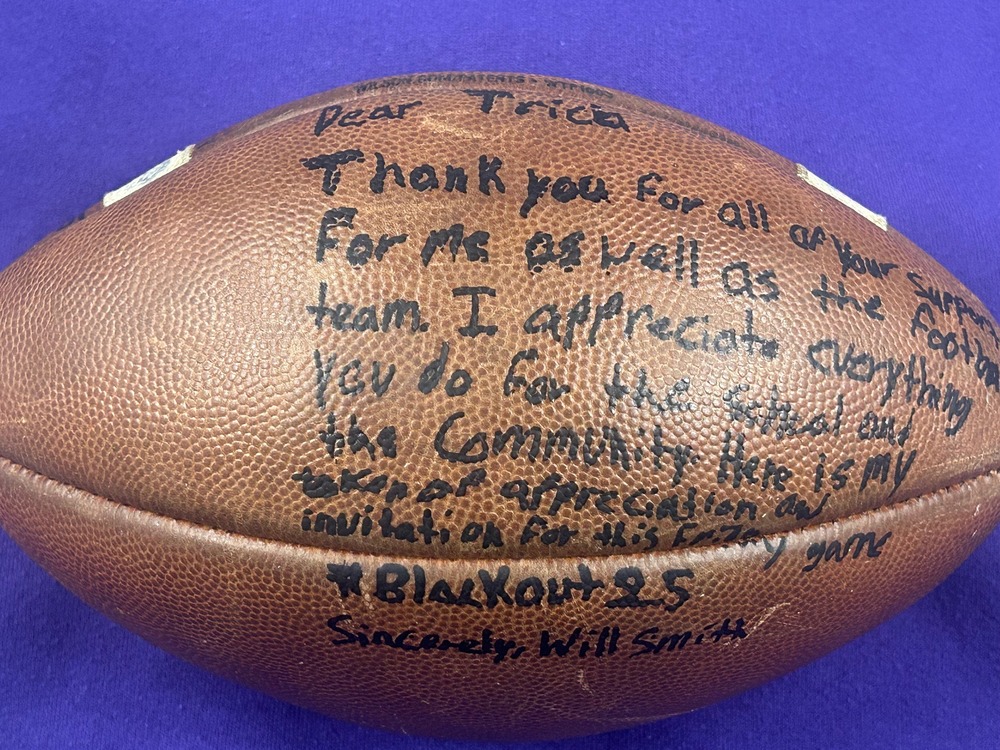 WILSON.COM/PATENTS
Dear Tricia
Thank you for all of your support
For me as well as the Footba
team. I appreciate everything
You do for the school and
the Community. Here is my
token of appreciation an
invitation for this Friday game
#Blackout25
Sincerely, Will Smith